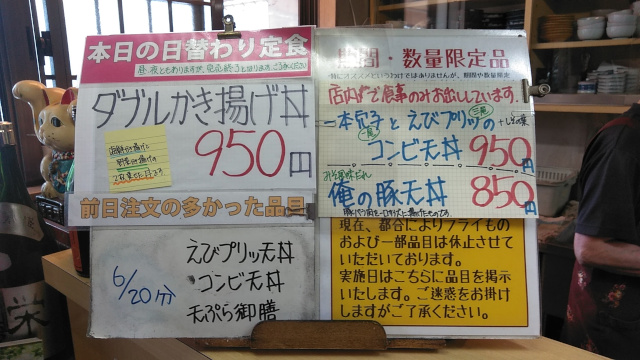 本日の日替わり定食
昼夜ともありますが、売切終了となります。ご了承ください
ダブルかき揚げ丼
950円
海鮮かき揚げに
野菜かき揚げの
2枚乗せた丼です
前日注文の多かった品目
6/20分
えびプリッ天丼
コンビ天丼
天ぷら御膳
期間・数量限定品
特にオススメというわけではありませんが、期間や数量限定
店内でご食事のみお出ししています。
一本穴子とえびプリッの
コンビ天丼 950円
俺の豚天丼 850円
現在、都合によりフライもの
および一部品目は休止させて
いただいております。
実施日はこちらに品目を掲示
いたします。ご迷惑をお掛け
しますがご了承ください。